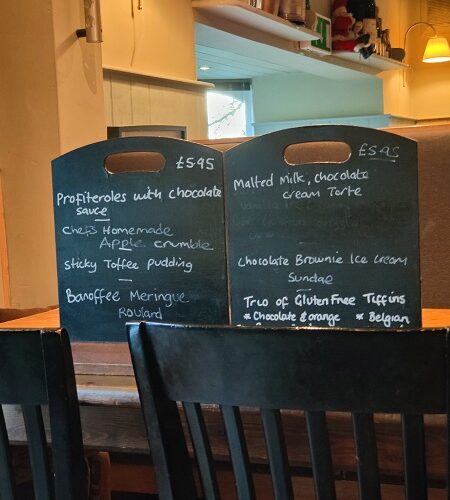 £5.95
Profiteroles with chocolate
sauce
Chefs Homemade
Apple crumble
Sticky Toffee Pudding
Banoffee Meringue
Roulard
£5.95
Malted milk, chocolate
cream Torte
Chocolate Brownie Ice Cream
Sundae
Trio of Gluten Free Tiffins
* Chocolate & orange * Belgian